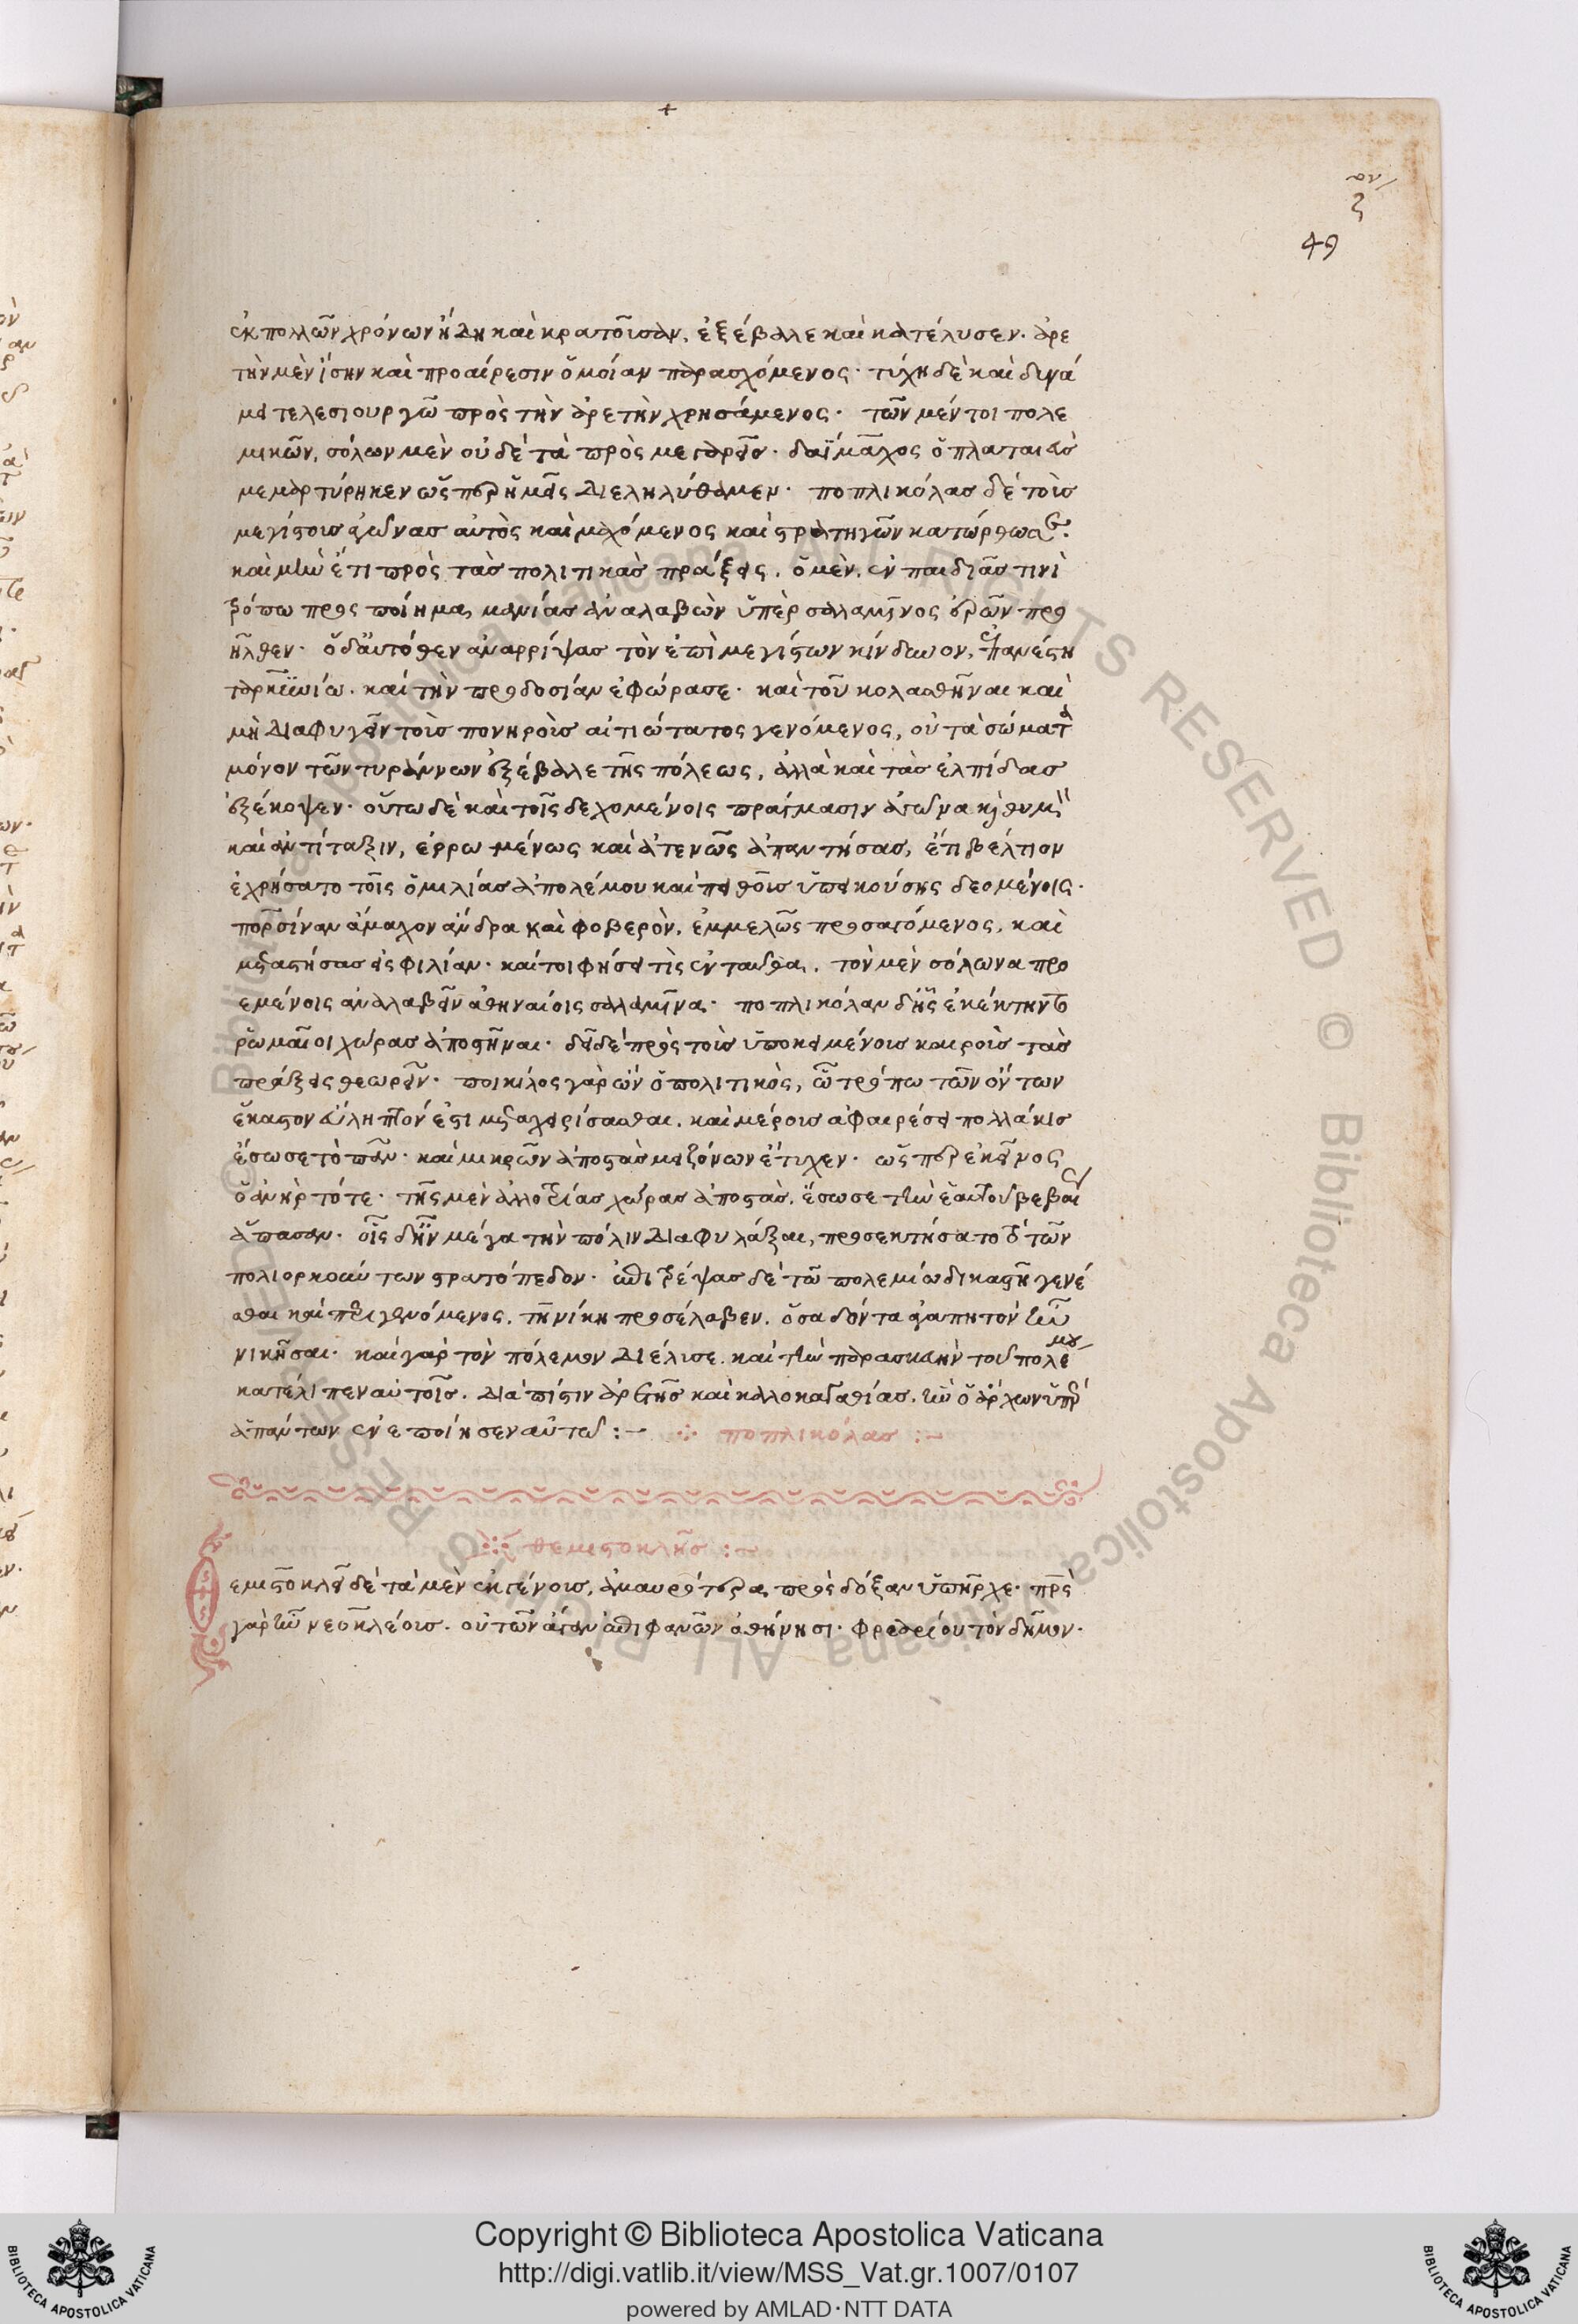 +
να/
ζ
49
ἐκ πολλῶν χρόνων ἤδη καὶ κρατοῦσαν, ἐξέβαλε καὶ κατέλυσεν. ἀρε
τὴν μὲν ἴσην καὶ προαίρεσιν ὁμοίαν παρασχόμενος· τύχη δὲ καὶ δυνά
μει τελεσιουργῶ πρὸς τὴν ἀρετὴν χρησάμενος· τῶν μέντοι πολε
μικῶν, σόλων μὲν οὐδὲ τὰ πρὸς μεγαρεῖς· δαΐμαχος ὁ πλαταιεὺς
μεμαρτύρηκεν ὥσπερ ἡμεῖς διεληλύθαμεν· ποπλικόλας δὲ τοὺς
μεγίστους ἀγῶνας αὐτὸς καὶ μαχόμενος καὶ στρατηγῶν κατώρθωσε.
καὶ μὴν ἔτι πρὸς τὰς πολιτικὰς πράξεις. ὁ μὲν, ἐν παιδιᾶς τινὶ
τρόπω προσποίημα μανίας ἀναλαβὼν ὑπὲρ σαλαμῖνος ἐρῶν προ
ῆλθεν· ὁ δ' αὐτόθεν ἀναρρίψας τὸν ἐπὶ μεγίστων κίνδυνον, ἐπανέστη
ταρκυνίω. καὶ τὴν προδοσίαν ἐφώρασε· καὶ τοῦ κολασθῆναι καὶ
μὴ διαφυγεῖν τοὺς πονηροὺς αἰτιώτατος γενόμενος, οὐ τὰ σώματα
μόνον τῶν τυράννων ἐξέβαλε τῆς πόλεως, ἀλλὰ καὶ τὰς ἐλπίδας
ἐξέκοψεν· οὕτω δὲ καὶ τοῖς δεχομένοις πράγμασιν ἀγῶνα καὶ θυμὸν
καὶ ἀντίταξιν, ἐρρωμένως καὶ ἀτενῶς ἀπαντήσας, ἔτι βέλτιον
ἐχρήσατο τοῖς ὁμιλίας ἀπολέμου καὶ πειθοῦς ὑπεικούσης δεομένοις·
πορσίναν ἄμαχον ἄνδρα καὶ φοβερὸν, ἐμμελῶς προσαγόμενος, καὶ
μεταστήσας εἰς φιλίαν· καίτοι φήσει τὶς ἐνταῦθα. τὸν μὲν σόλωνα προ
εμένοις ἀναλαβεῖν ἀθηναίοις σαλαμῖνα· ποπλικόλαν δ' ἧς ἐκέκτηντο
ῥωμαῖοι χώρας ἀποστῆναι· δεῖ δὲ πρὸς τοὺς ὑποκειμένους καιροὺς τὰς
πράξεις θεωρεῖν· ποικίλος γὰρ ὢν ὁ πολιτικὸς, ᾧ τρόπω τῶν ὄντων
ἕκαστον εὔληπτόν ἐστι μεταχειρίσασθαι. καὶ μέρους ἀφαιρέσει πολλάκις
ἔσωσε τὸ πᾶν· καὶ μικρῶν ἀποστὰς μειζόνων ἔτυχεν· ὥσπερ ἐκεῖνος
ὁ ἀνὴρ τότε· τῆς μὲν ἀλλοτρίας χώρας ἀποστὰς, ἔσωσε τὴν ἑαυτοῦ βεβαίως
ἅπασαν. οἷς δ' ἦν μέγα τὴν πόλιν διαφυλάξαι, προσεκτήσατο τὸ τῶν
πολιορκούντων στρατόπεδον· ἐπιτρέψας δὲ τῶ πολεμίω δικαστῆ γενέ
σθαι καὶ περιγενόμενος, τῆ νίκη προσέλαβεν, ὅσα δόντα ἀγαπητὸν ἦν
νικῆσαι· καὶ γὰρ τὸν πόλεμον διέλυσε, καὶ τὴν παρασκευὴν τοῦ πολέμου
κατέλιπεν αὐτοῖς. διὰ πίστιν ἀρετῆς καὶ καλοκαγαθίας, ἣν ὁ ἄρχων ὑπὲρ
ἁπάντων ἐνεποίησεν αὐτῶ :-  ποπλικόλας :-
θεμιστοκλῆς :-
Θεμιστοκλεῖ δὲ τὰ μὲν ἐκ γένους, ἀμαυρότερα πρὸς δόξαν ὑπῆρχε· πατρὸς
γὰρ ἦν νεοκλέους. οὐ τῶν ἄγαν ἐπιφανῶν ἀθήνησι· φρεαρίου τὸν δῆμον·
Copyright © Biblioteca Apostolica Vaticana
http://digi.vatlib.it/view/MSS_Vat.gr.1007/0107
powered by AMLAD·NTT DATA